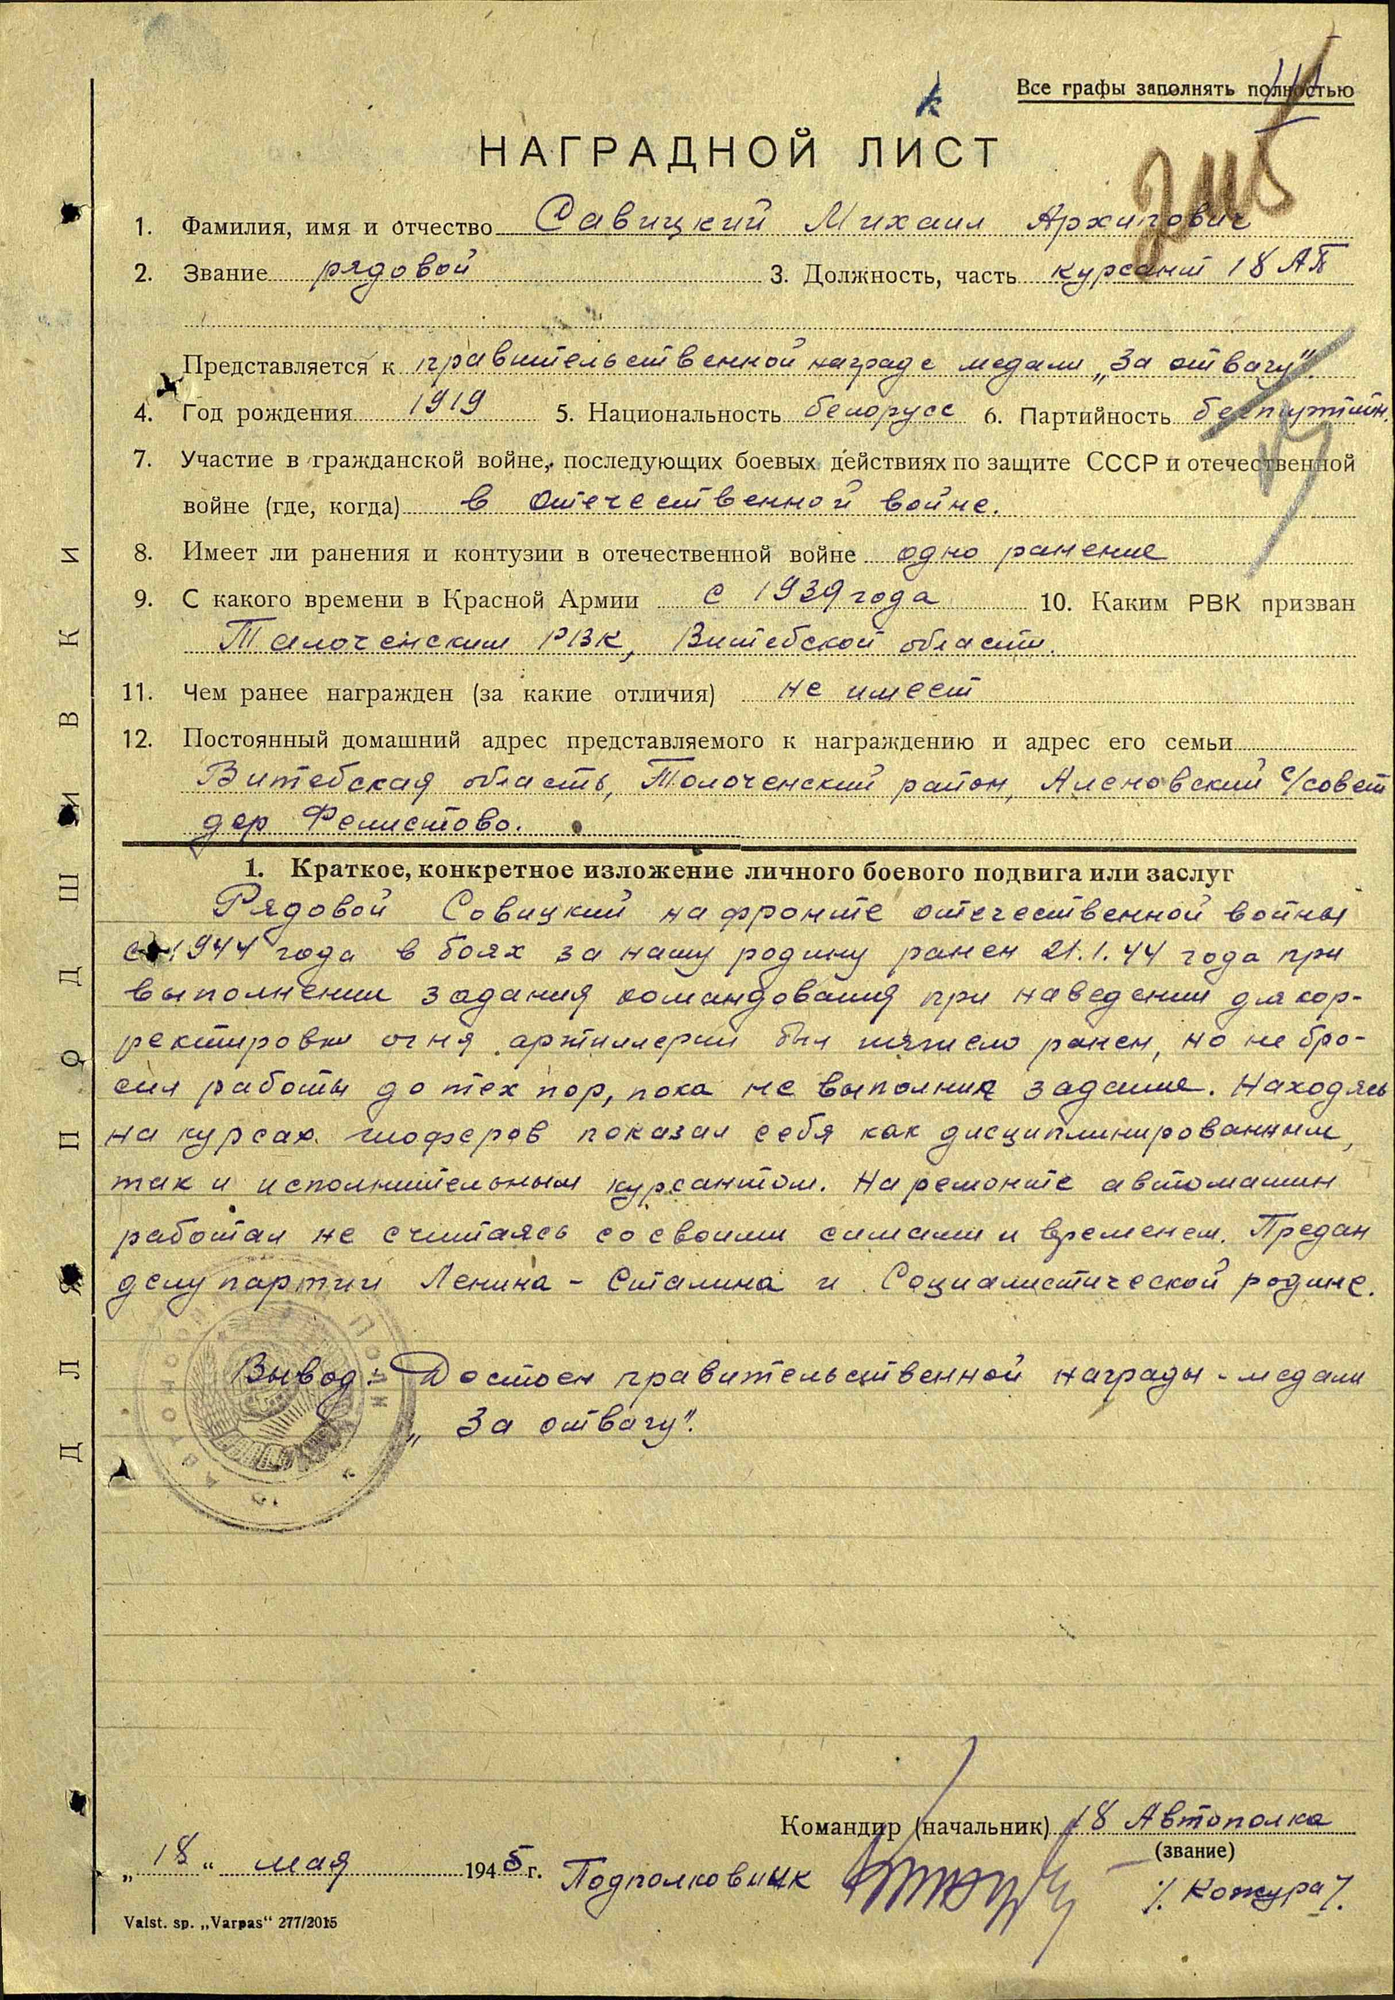 Все графы заполнять полностью
НАГРАДНОЙ ЛИСТ
1. Фамилия, имя и отчество Савицкий Михаил Архипович
2. Звание рядовой 3. Должность, часть курсант 18 АП
Представляется к правительственной награде медали „За отвагу".
4. Год рождения 1919 5. Национальность белорусс 6. Партийность беспартийн.
7. Участие в гражданской войне, последующих боевых действиях по защите СССР и отечественной
войне (где, когда) в отечественной войне.
8. Имеет ли ранения и контузии в отечественной войне одно ранение
9. С какого времени в Красной Армии с 1939 года 10. Каким РВК призван
Толоченским РВК, Витебской области.
11. Чем ранее награжден (за какие отличия) не имеет
12. Постоянный домашний адрес представляемого к награждению и адрес его семьи
Витебская область, Толоченский район, Аленовский с/совет
дер Фелистово.
1. Краткое, конкретное изложение личного боевого подвига или заслуг
Рядовой Совицкий на фронте отечественной войны
с 1944 года в боях за нашу родину ранен 21.1.44 года при
выполнении задания командования при наведении для кор-
ректировки огня артиллерии был тяжело ранен, но не бро-
сил работы до тех пор, пока не выполнил задание. Находясь
на курсах шоферов показал себя как дисциплинированным,
так и исполнительным курсантом. На ремонте автомашин
работал не считаясь со своими силами и временем. Предан
делу партии Ленина - Сталина и Социалистической родине.
Вывод: Достоен правительственной награды - медали
„За отвагу".
Командир (начальник) 18 Автополка
(звание)
„18" мая 1945 г. Подполковник /Кожура/.
Valst. sp. „Varpas" 277/2015
ДЛЯ ПОДШИВКИ